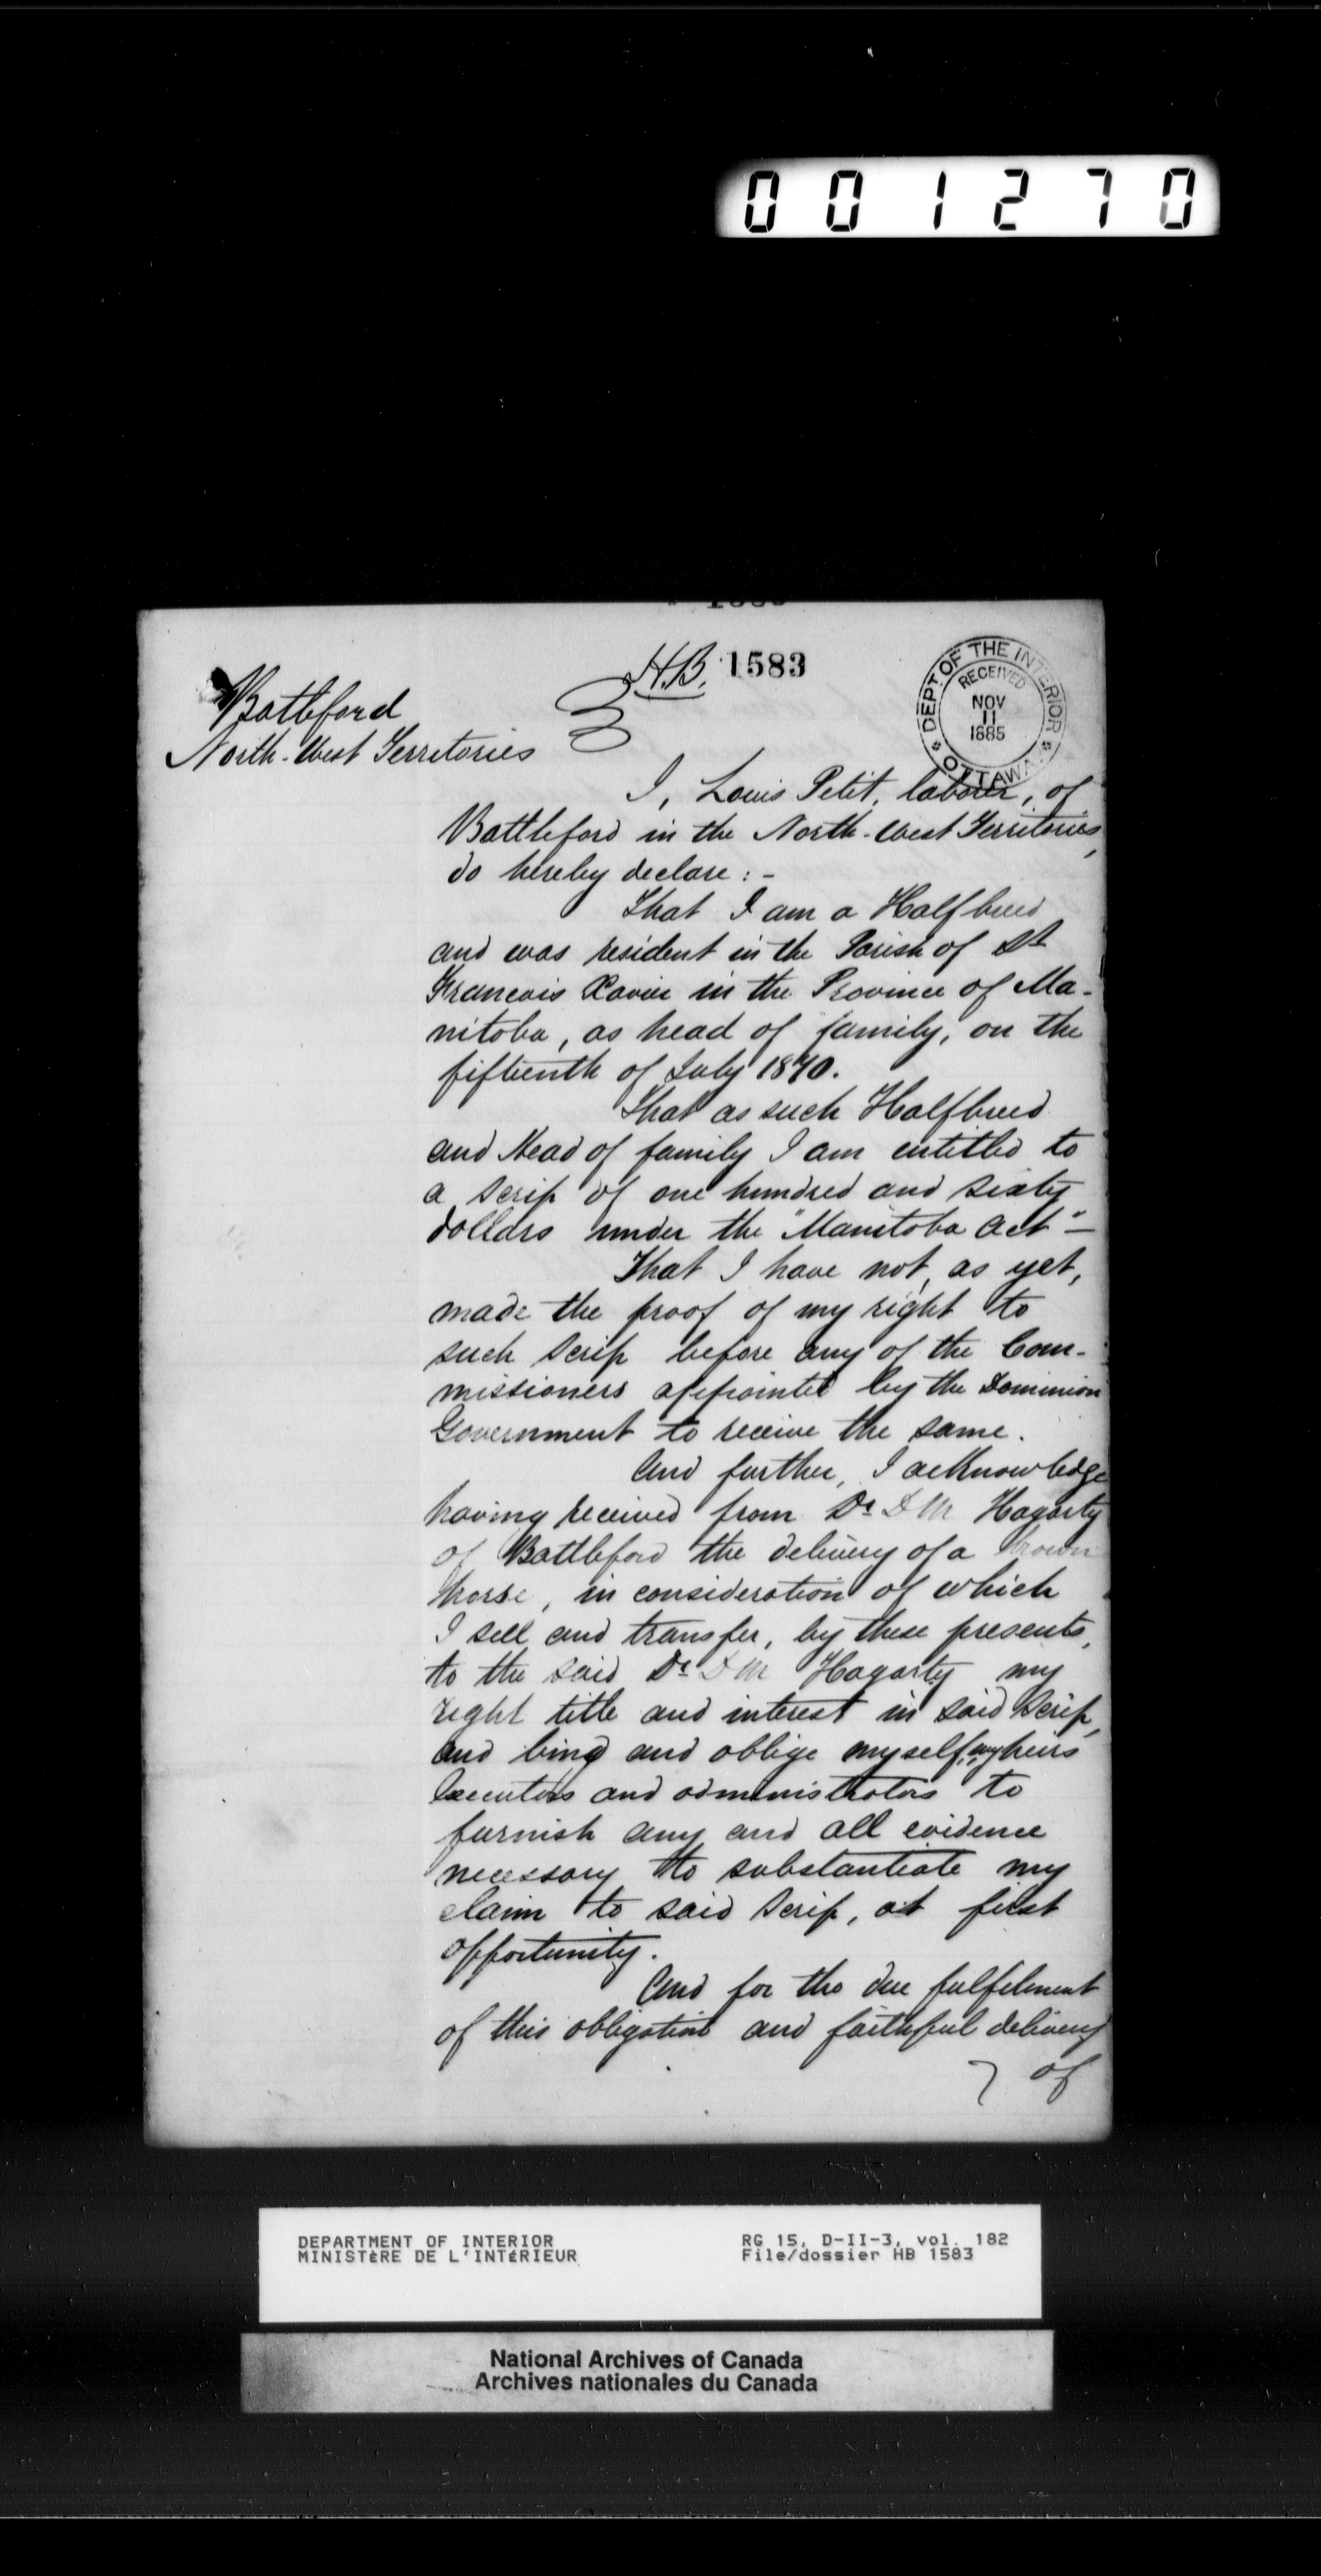 001270
H.B. 1583
DEPT. OF THE INTERIOR
RECEIVED
NOV
11
1885
OTTAWA
Battleford
North-West Territories
I, Louis Petit, laborer, of
Battleford in the North-West Territories,
do hereby declare :-
That I am a Halfbreed
and was resident in the Parish of St
Francois Xavier in the Province of Ma-
nitoba, as head of family, on the
fifteenth of July 1870.
That as such Halfbreed
and Head of family I am entitled to
a scrip of one hundred and sixty
dollars under the "Manitoba Act" -
That I have not, as yet,
made the proof of my right to
such scrip before any of the Com-
missioners appointed by the Dominion
Government to receive the same.
And further, I acknowledge
having received from Dr D M Hagarty
of Battleford the delivery of a brown
horse, in consideration of which
I sell and transfer, by these presents,
to the said Dr D M Hagarty my
right title and interest in said scrip,
and bind and oblige myself, my heirs
executors and administrators to
furnish any and all evidence
necessary to substantiate my
claim to said scrip, at first
opportunity.
And for the due fulfilment
of this obligation and faithful delivery
of
DEPARTMENT OF INTERIOR
MINISTÈRE DE L'INTÉRIEUR
RG 15, D-II-3, vol. 182
File/dossier HB 1583
National Archives of Canada
Archives nationales du Canada